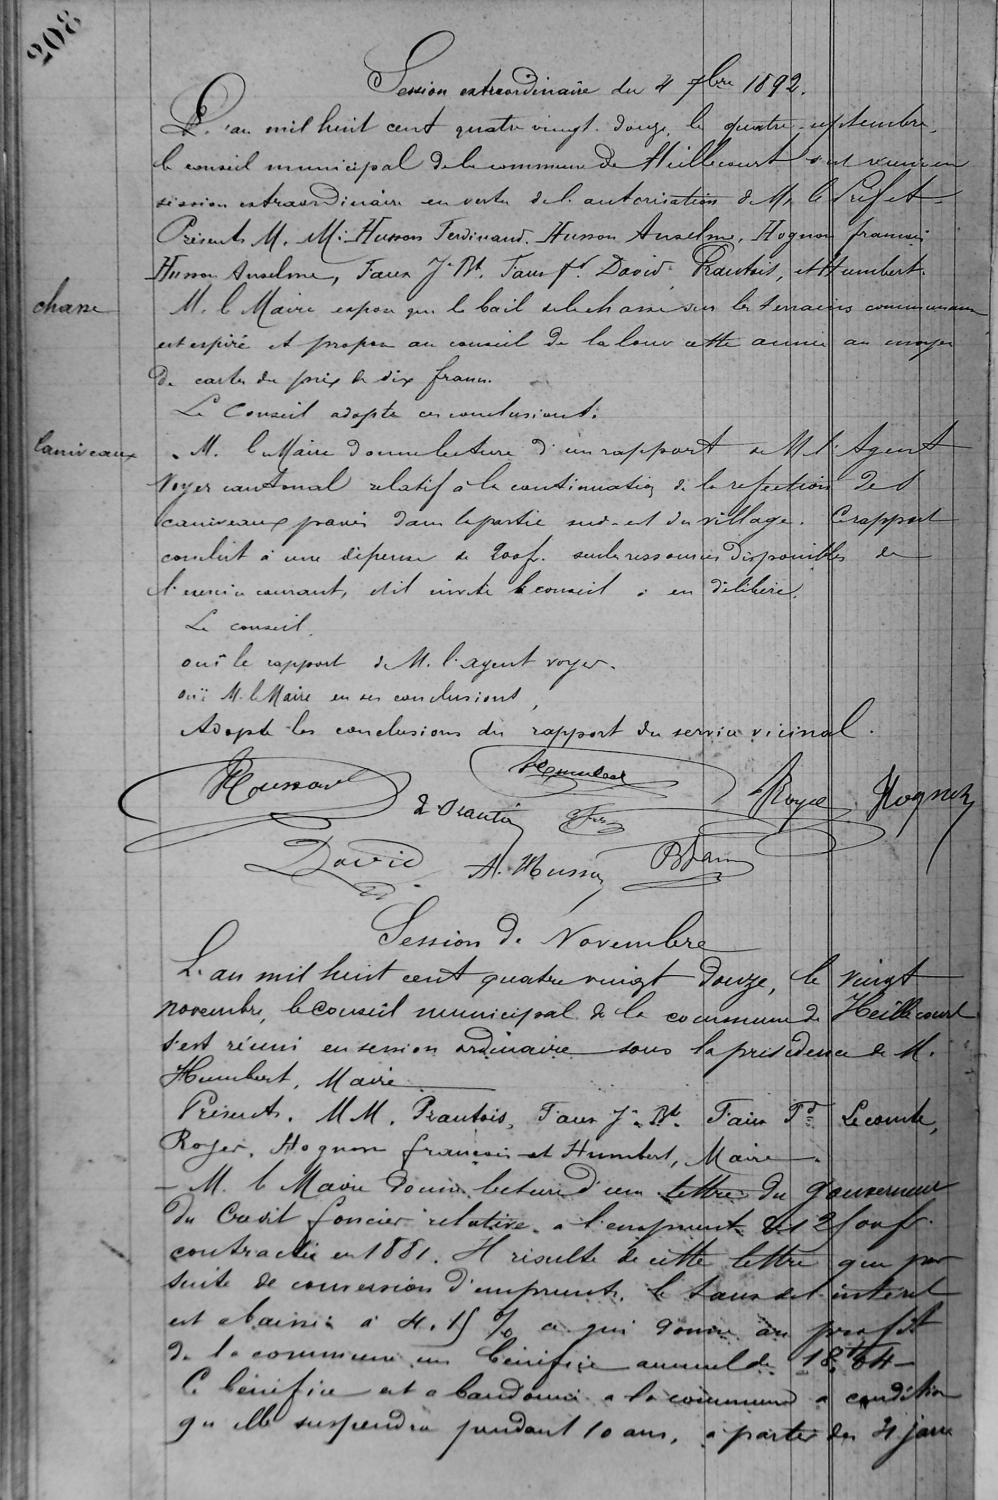 208
Session extraordinaire du 4 7bre 1892.
L'an mil huit cent quatre vingt douze, le quatre septembre,
le conseil municipal de la commune de Heillecourt s'est réuni en
session extraordinaire en vertu de l'autorisation de Mr le Préfet.
Présents M. M. Husson Ferdinand, Husson Anselme, Hognon françois
Husson Anselme, Faux J. Bte. Faux fd. David, Prautois, et Humbert.
chasse
M. le Maire expose que le bail de la chasse sur les terrains communaux
est expiré et propose au conseil de la louer cette année au moyen
de cartes du prix de dix francs.
Le Conseil adopte ces conclusions.
Caniveaux
M. le Maire donne lecture d'un rapport de M l'Agent
Voyer cantonal relatif à la continuation de la refection des
caniveaux pavés dans la partie sud-est du village. Ce rapport
conclut à une dépense de 200f. sur les ressources disponibles de
l'exercice courant, et il invite le conseil à en délibérer.
Le conseil,
ouï le rapport de M. l'agent voyer.
ouï M. le Maire en ses conclusions,
Adopte les conclusions du rapport du service vicinal.
Husson Humbert Royer Hognon
Prautois
David A. Husson
Session de Novembre
L'an mil huit cent quatre vingt douze, le vingt
novembre, le conseil municipal de la commune de Heillecourt
s'est réuni en session ordinaire sous la présidence de M.
Humbert, Maire
Présents. M M. Prautois, Faux J. Bte. Faux Fd. Lecomte,
Royer, Hognon françois et Humbert, Maire.
- M. le Maire donne lecture d'une lettre du Gouverneur
du Crédit foncier relative à l'emprunt de 2500fr.
contractée en 1881. Il résulte de cette lettre que par
suite de conversion d'emprunts, le taux de l'intérêt
est abaissé à 4.15 % ce qui donne au profit
de la commune un bénéfice annuel de 18f,64
Ce bénéfice est abandonné a la commune a condition
qu'elle suspendra pendant 10 ans, à partir du 31 janv